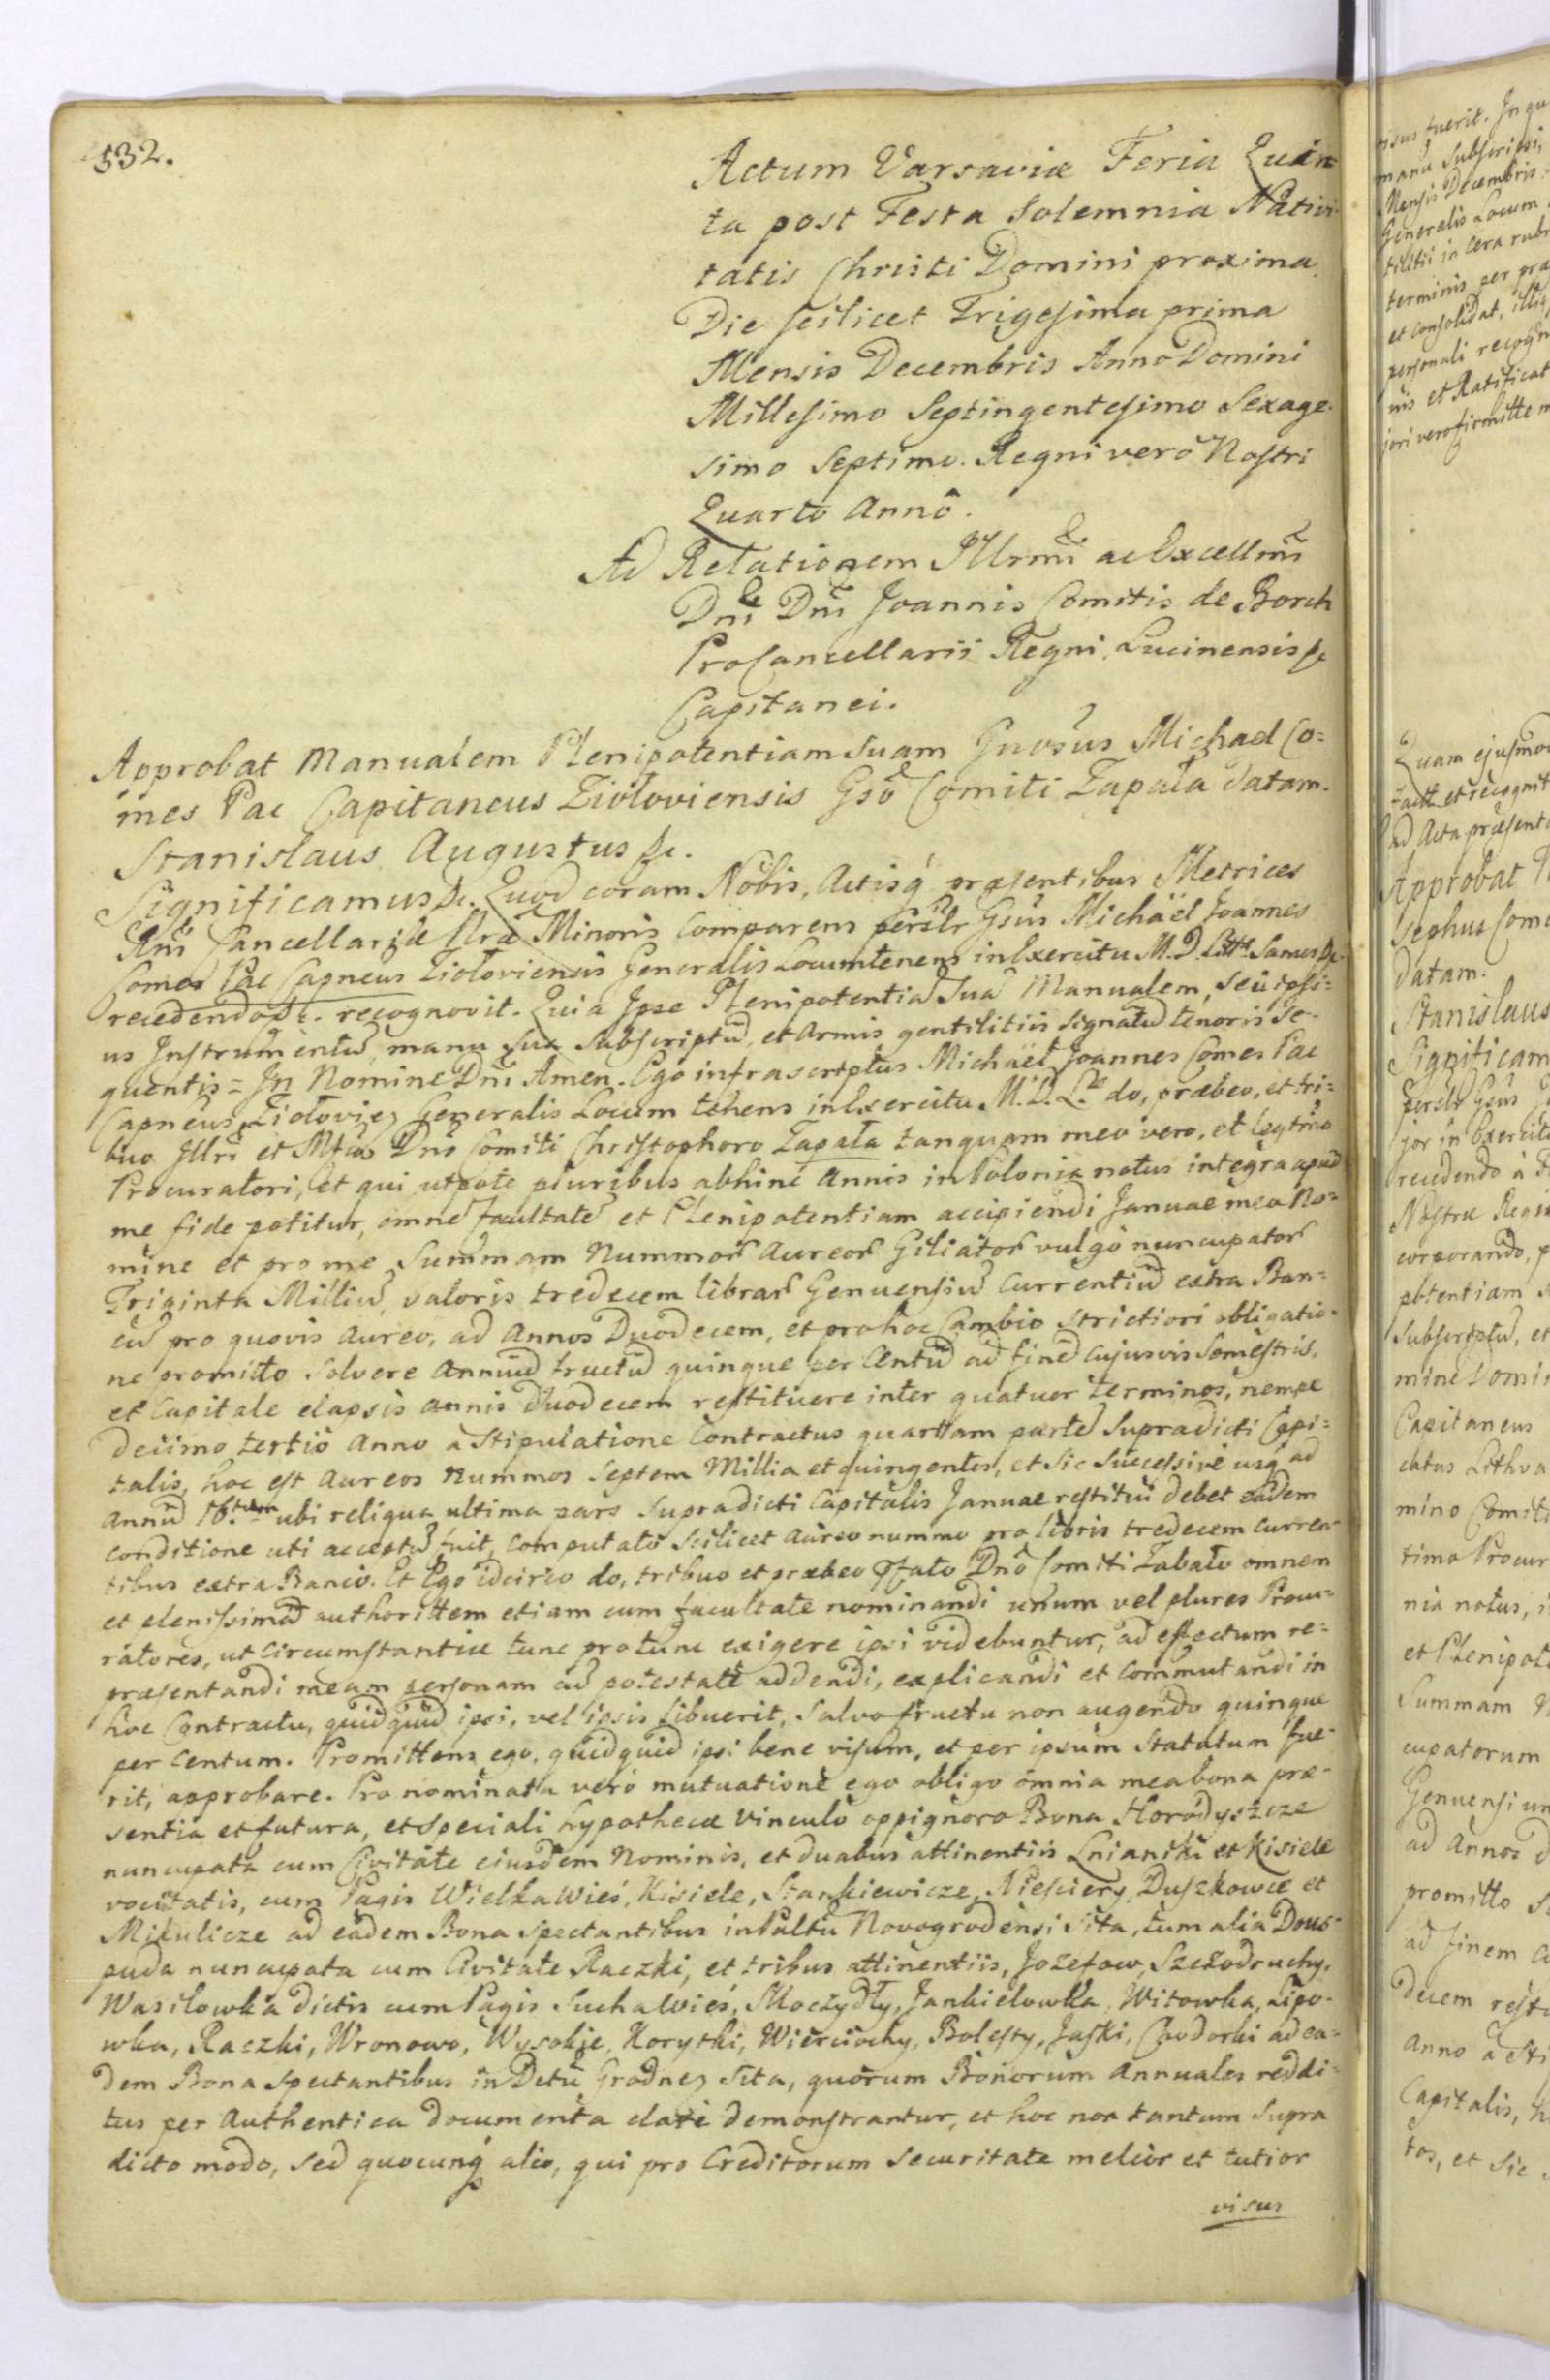 532.
Actum Varsaviæ Feria Quin=
ta post Festa Solemnia Nativi-
tatis Christi Domini proxima
Die scilicet Trigesima prima
Mensis Decembris Anno Domini
Millesimo Septingentesimo Sexage-
simo Septimo. Regni verò Nostri
Quarto Annô.
Ad Relationem Illrmi ac Excellmi
Dni Dni Joannis Comitis de Borch
ProCancellarii Regni, Lucinensis &c
Capitanei.
Approbat Manualem Plenipotentiam Suam Gnosus Michael Co=
mes Pac Capitaneus Ziołoviensis Gsô Comiti Zapata datam.
Stanislaus Augustus &c.
Significamus &c. Quod coram Nobis, Actisq́ præsentibus Metrices
Rni Cancellariæ Nræ Minoris Comparens persłr Gsus Michaël Joannes
Comes Pac Capneus Ziołoviensis Generalis Locumtenens in Exercitu M. D. Litt. Sanus &c.
recedendo &c. recognovit. Quia Ipse Plenipotentia Sua Manualem, Seu ipsi=
us Instrumentũ, manu Sua Subscriptũ, et Armis gentilitiis Signatũ tenoris Se-
quentis = In Nomine Dni Amen. Ego infrascriptus Michaël Joannes Comes Pac
Capneus Ziołovien Generalis Locum tenens in Exercitu M. D. L. do, præbeo, et tri=
buo Illri et Mfico Dnô Comiti Christophoro Zapata tanquam meo vero, et legtimo
Procuratori, et qui utpote pluribus abhinc Annis in Polonia notus integra apud
me fide potitur, omnẽ facultatẽ et Plenipotentiam accipiendi Januae meo No=
mine et pro me Summam Nummor Aureor Giliator vulgò nuncupator
Triginta Milliũ, valoris tredecem librar Genuensiũ Currentiũ extra Ban=
cũ pro quovis Aureo, ad Annos Duodecem, et pro hoc Cambio Strictiori obligatio-
ne promitto Solvere Annuũ fructũ quinque per Centũ ad finẽ Cujusvis Semestris,
et Capitale elapsis annis duodecem restituere inter quatuor terminos, nempe
decimo tertio Anno à Stipulatione Contractus quartam partẽ Supradicti Capi=
talis, hoc est Aureos Nummos Septem Millia et quingentos, et Sic Successivè usq́ ad
Annũ 16.tum ubi reliqua ultima pars Supradicti Capitalis Januae restitui debet eâdem
conditione uti acceptũ fuit, Computato Scilicet Aureo nummo pro libris tredecem Curren-
tibus extra Banco. Et Ego idcirco do, tribuo et præbeo Pfato Dnô Comiti Zabato omnem
et plenissimã authorittem etiam cum facultate nominandi unum vel plures Procu=
ratores, ut Circumstantiæ tunc pro tunc exigere ipsi videbuntur, ad effectum re=
præsentandi meam personam ad potestatẽ addendi, explicandi et Commutandi in
hoc Contractu, quidquid ipsi, vel ipsis libuerit, Salvo fructu non augendo quinque
per Centum. Promittens ego, quidquid ipsi bene visum, et per ipsum Statutum fue-
rit, approbare. Pro nominata verò mutuatione ego obligo omnia mea bona præ-
sentia et futura, et Speciali hypothecæ Vinculo oppignoro Bona Horodyszcze
nuncupata cum Civitate eiusdem Nominis, et duabus attinentiis Lnianiki et Kisiele
vocitatis, cum Pagis Wielka Wieś, Kisiele, Stankiewicze, Niesciery, Duszkowce et
Mikulicze ad eadem Bona Spectantibus in Palttu Novogrodensi Sita, tum alia Dous-
puda nuncupata cum Civitate Raczki, et tribus attinentiis, Jozefow, Szczodruchy,
Wasilowka dictis cum Pagis Sucha Wieś, Moczydły, Jankielowka, Witowka, Lipo-
wka, Raczki, Wronowo, Wysokie, Korytki, Wierciochy, Bolesty, Jaski, Chodorki ad ea=
dem Bona Spectantibus in Dctu Grodnen Sita, quorum Bonorum Annuales reddi-
tus per Authentica documenta clarè demonstrantur, et hoc non tantum Supra
dicto modo, Sed quocunq́ alio, qui pro Creditorum Securitate melior et tutior
visus
isus fuerit. In qu
manu Subscripsi,
Mensis Decembris
Generalis Locum
tilitii in Cera rubr
terminis per præ
et Consolidat, illiq
personali recogn
nis et Ratificat
jori vero firmitte m
Quam ejusmo
tactt et recognit
ad Acta præsent
Approbat
sephus Come
datam.
Stanislaus
Significam
perslr Gsus
jor in Exercit
recedendo à
Nostræ Regi
corporando, p
potentiam
Subscriptũ, et
mine Domi
Capitaneus
catus Lithva
mino Comit
timo Procur
nia notus,
et Plenipot
Summam
cupatorum
Genuensiun
ad Annos d
promitto
ad finem
decem rest
Anno à Sti
Capitalis, h
tos, et Sic